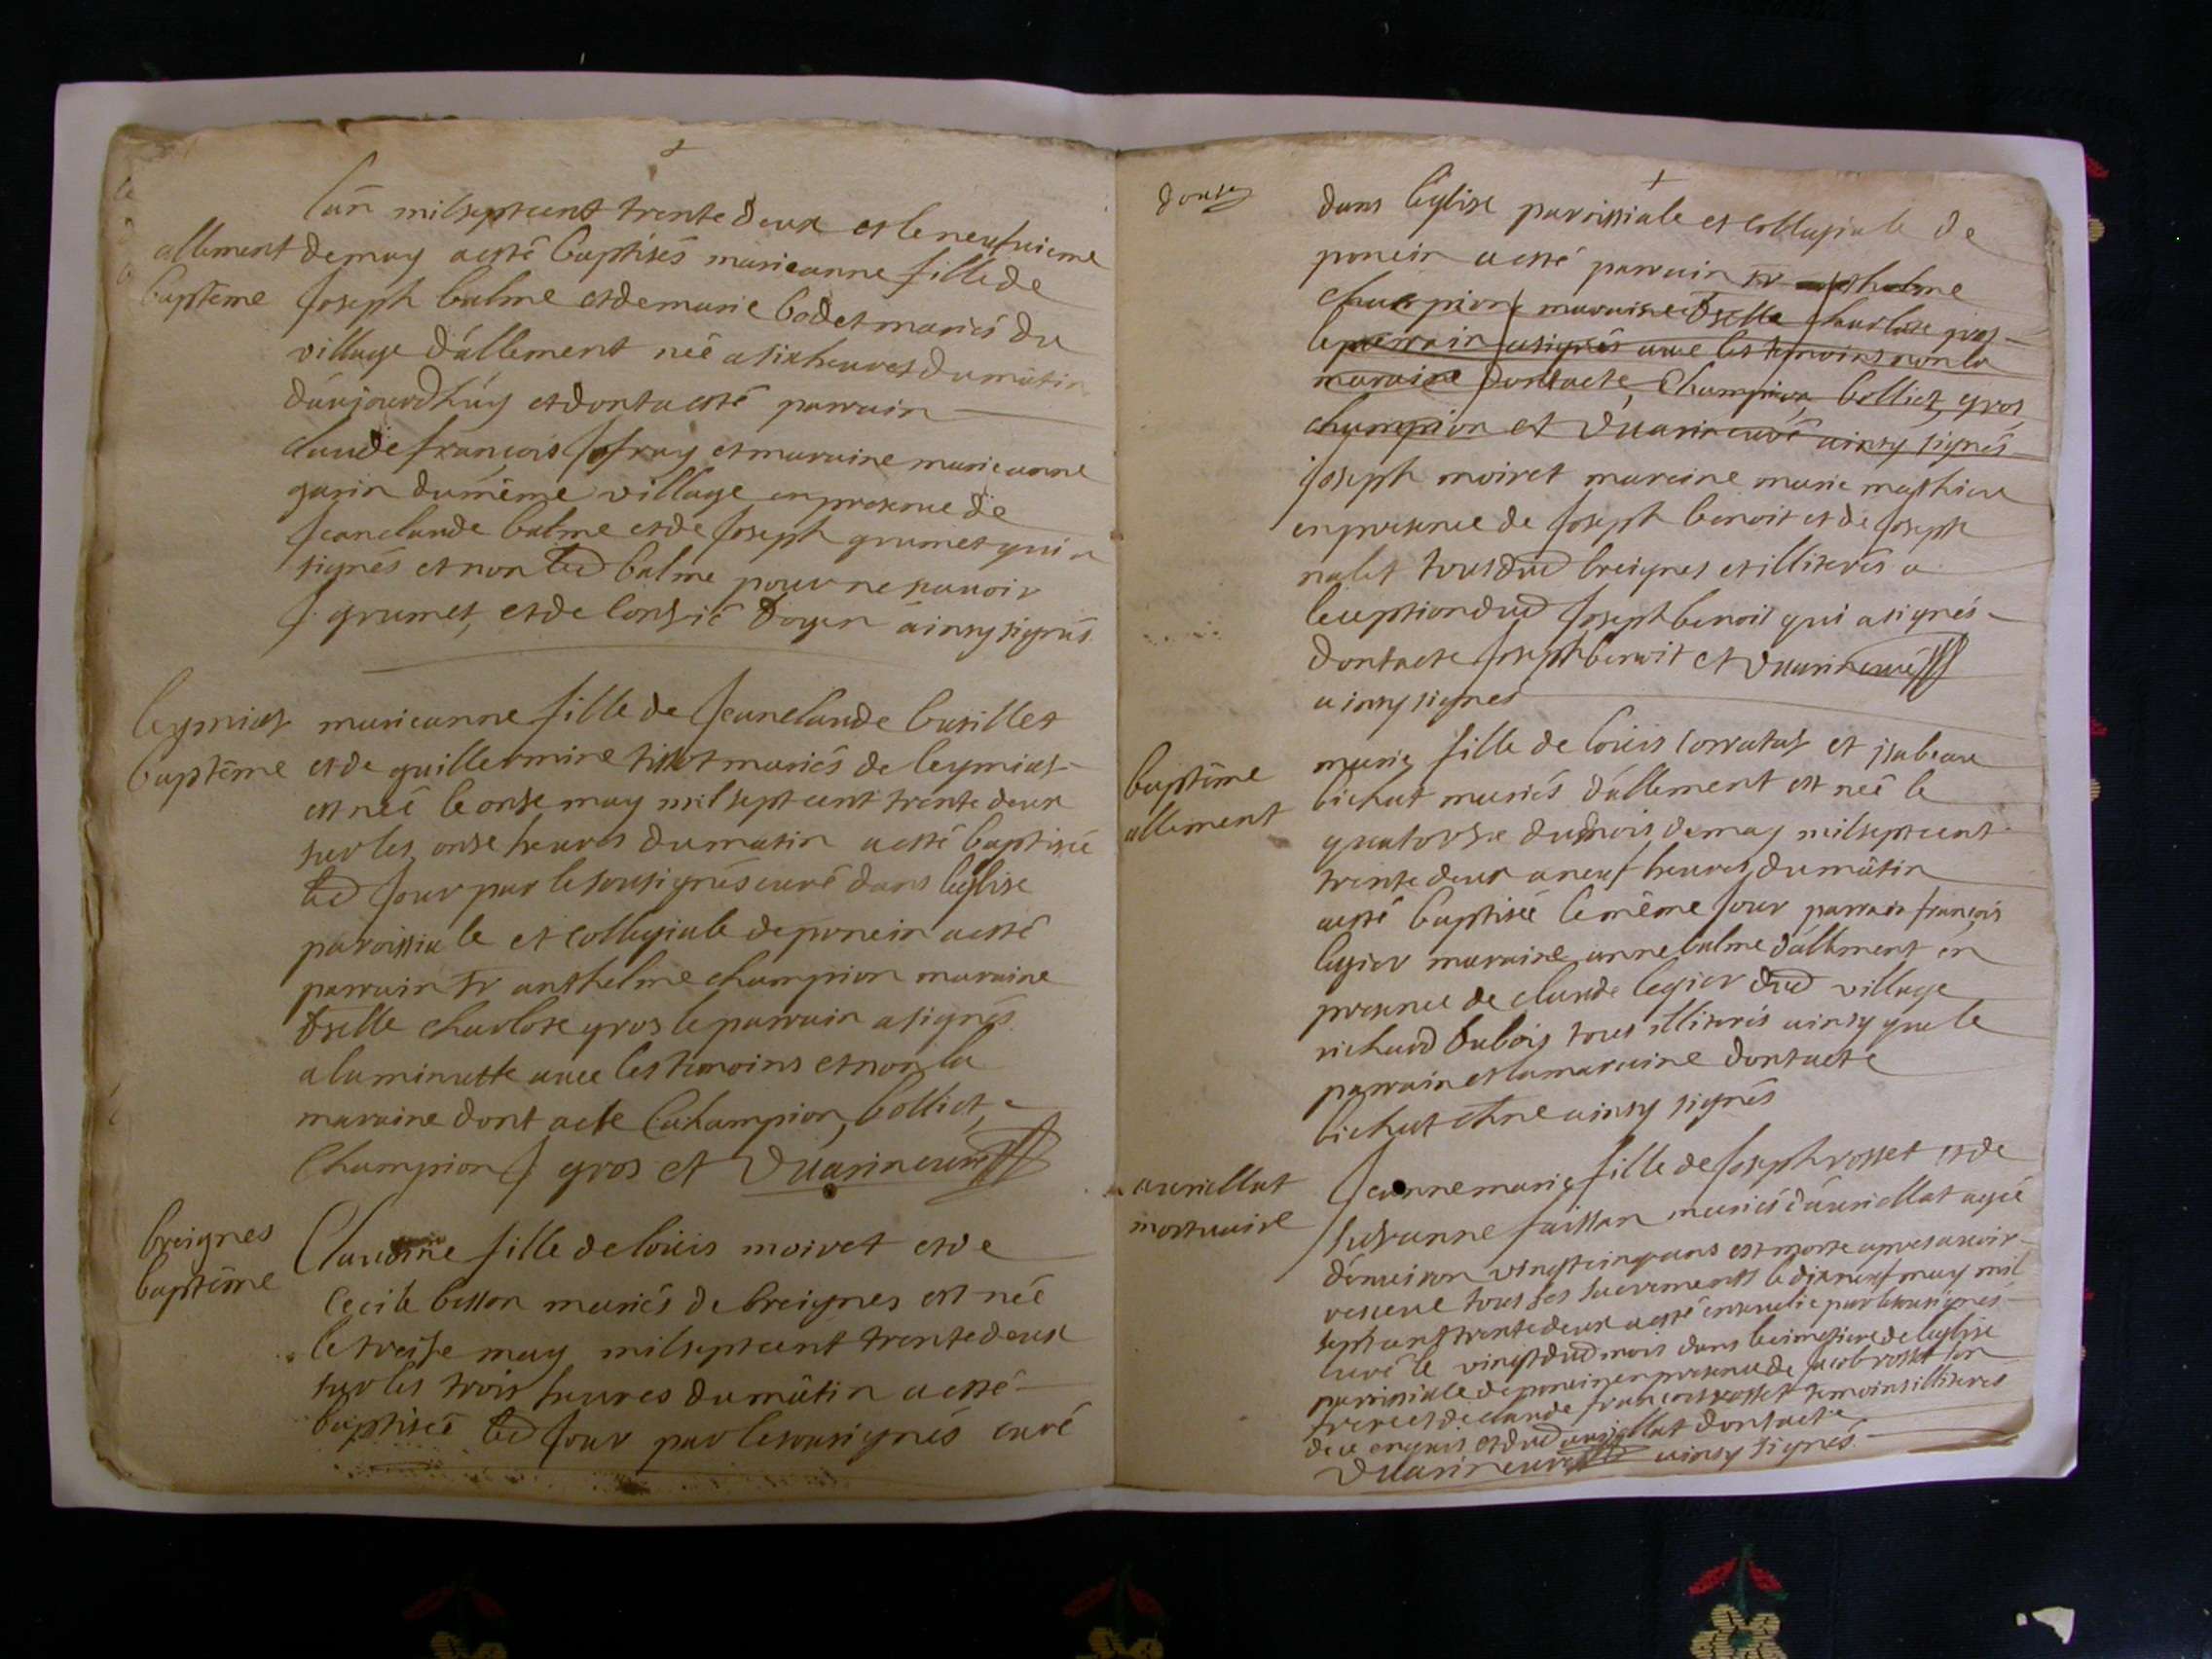 lan mil sept cent trente deux et le neufvieme
allement
baptême
de may a esté baptisés marieanne fille de
Joseph balme et de marie bodet mariés du
village d'allement née a six heures du mâtin
d'aujourdhuy et dont a esté parrain
claude françois Jofray et maraine marieanne
garin du même village en presence de
Jean claude balme et de Joseph grumet qui a
signés et non led balme pour ne scavoir
J. grumet, et de doyen ainsy signés
leymiat
baptême
marieanne fille de Jean claude busillet
et de guillermine tissot mariés de leymiat
est née le onse may mil sept cent trente deux
sur les onse heures du matin a esté baptisée
led Jour par le sousignés curé dans l'église
paroissiale et collegiale de poncin a esté
parrain sr anthelme champion maraine
dselle charlote gros le parrain a signés
a la minutte avec les temoins et non la
maraine dont acte Champion, bolliet,
Champion J gros et Duarin curé
breignes
baptême
Claudine fille de loüis moiret et de
Cecile besson mariés de breignes est née
le treise may mil sept cent trente deux
sur les trois heures du mâtin a esté
baptiseé led Jour par le sousignés curé
dans l'église paroissiale et collegiale de
poncin a esté parrain sr anthelme
champion maraine dselle charlote gros
le parrain a signés avec les temoins non la
maraine dont acte, Champion, bolliet, gros,
champion et Duarin curé ainsy signés
joseph moiret maraine marie mathieu
en presence de Joseph benoit et de Joseph
nalet tous dud breignes et illiterés a
l'exception dud Joseph benoit qui a signés
dont acte Joseph benoit et Duarin curé
ainsy signés
baptême
allement
marie fille de loüis corratat et jsabeau
bichat mariés d'allement est née le
quatorse du mois de may mil sept cent
trente deux a neuf heures du mâtin
a esté baptisée le même Jour parrain françois
legier maraine anne balme d'allement en
presence de claude legier dud village
richard dubois tous illiterés ainsy que le
parrain et la maraine dont acte
bichat chne ainsy signés
avrillat
mortuaire
Jeanne marie fille de Joseph rosset et de
susanne faisson mariés d'avrillat agée
d'environ vingt cinq ans est morte apres avoir
receue tous ses sacrements le dix neuf may mil
sept cent trente deux a esté ensevelie par le sousignés
curé le vingt dud mois dans le cimetiere de l'eglise
parroissiale de poncin en presence de Jacob rosset son
frere et de claude françois rosset temoins illiteres
de ce enquis et dud avrillat dont acte
Duarin curé ainsy signés